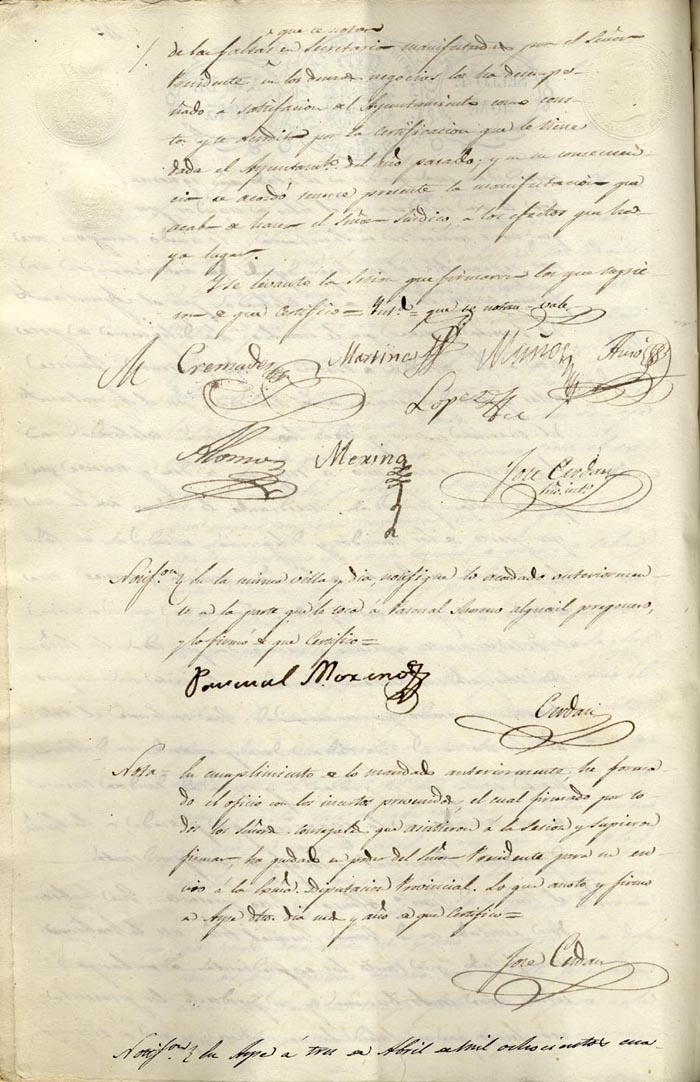 que se notan
de las faltas en Secretario manifestadas por el Señor
Presidente, en los demas negocios los há desempe-
ñado á satisfacion del Ayuntamiento como cons-
ta y se acredita por la Certificacion que le tiene
dada el Ayuntamto. del año pasado; y en su consecuen-
cia se acordó tenerse presente la manifestacion que
acaba de hacer el Señor Sindico, á los efectos que ha-
ya lugar.
Y se levantó la Sesion que firmaron los que supie-
ron de que Certifico = Int.do = que se notan = vale
M Cremades Martinez Muñoz
Lopez
Alonso Merino Jose Cerdan
Srio. into.
Notifon. En la misma villa y dia, notifiqué lo acordado anteriormen-
te a la parte que le toca á Pascual Moreno alguacil pregonero,
y lo firmó de que Certifico =
Pascual Moreno
Cerdan
Nota = En cumplimiento de lo mandado anteriormente, he forma-
do el oficio con los insertos prevenidos, el cual firmado por to
dos los Señores concejales que asistieron á la Sesion y supieron
firmar, ha quedado en poder del Señor Presidente para su en-
vio á la Exma. Diputacion Provincial. Lo que anoto y firmo
en Aspe dhos. dia mes y año de que Certifico =
Jose Cerdan
Notifon. En Aspe á tres de Abril de mil ochocientos cua-